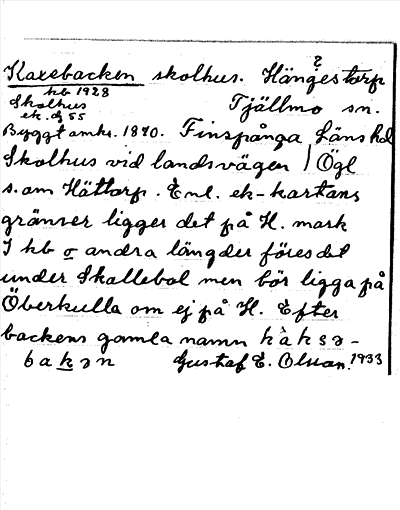 ?
Kaxebacken skolhus. Hängestorp
kb 1928
Skolhus Tjällmo sn.
ek. bl 55
Byggt omkr. 1870. Finspånga läns hd
Skolhus vid landsvägen / Ögl
s. om Hättorp. Enl. ek-kartans
gränser ligger det på H. mark
I kb o andra längder föres det
under Skallebol men bör ligga på
Överkulla om ej på H. Efter
backens gamla namn kàksə-
bakən Gustaf E. Olsson. 1933